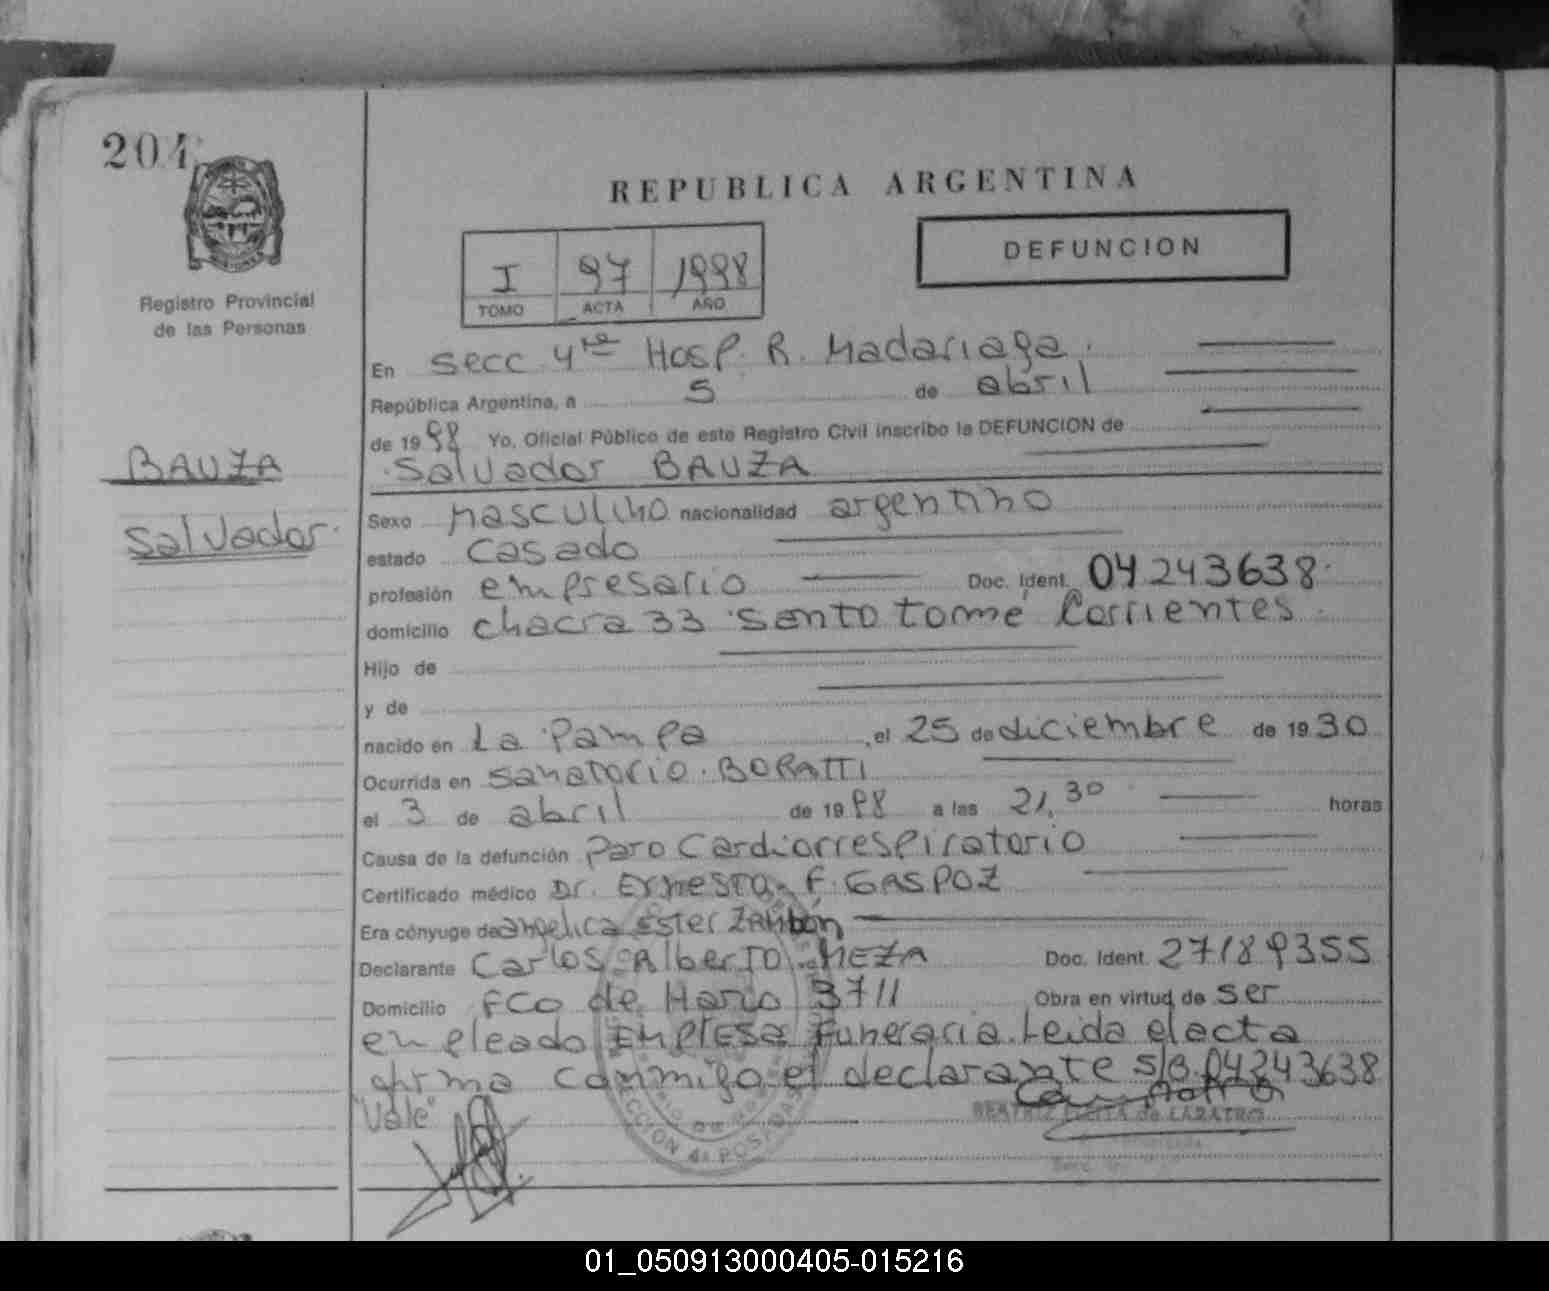 204
Registro Provincial
de las Personas
REPUBLICA ARGENTINA
I 97 1998
TOMO ACTA AÑO
DEFUNCION
En Secc 4ta Hosp. R. Madariaga.
República Argentina, a 5 de abril
de 1998 Yo, Oficial Público de este Registro Civil inscribo la DEFUNCION de
Salvador BAUZA
BAUZA
Salvador.
Sexo Masculino nacionalidad argentino
estado Casado
profesión empresario Doc. Ident. 04243638.
domicilio chacra 33 Santo tomé Corrientes.
Hijo de
y de
nacido en La Pampa, el 25 de diciembre de 1930
Ocurrida en Sanatorio. BORATTI
el 3 de abril de 1998 a las 21,30 horas
Causa de la defunción Paro Cardiorrespiratorio
Certificado médico Dr. Ernesto F. GASPOZ
Era cónyuge de angelica Ester ZAMbón
Declarante Carlos Alberto MEZA Doc. Ident. 27189355
Domicilio FCO de Haro 3711 Obra en virtud de ser
empleado Empresa Funeraria. Leida el acta
firma conmigo el declarante s/B. 04243638
"Vale"
BEATRIZ de LABATRO
SECCION 4a POSADAS
01_050913000405-015216